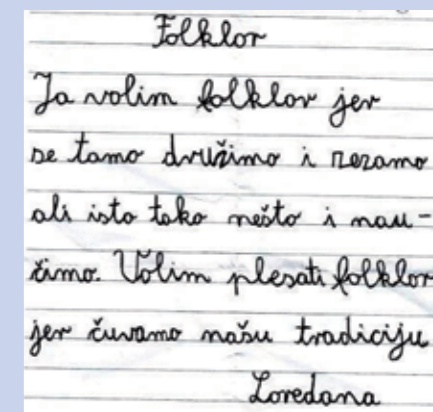 Folklor
Ja volim folklor jer
se tamo družimo i
ali isto tako nešto i nau-
čimo. Volim plesati folklor
jer čuvamo našu tradiciju
Loredana